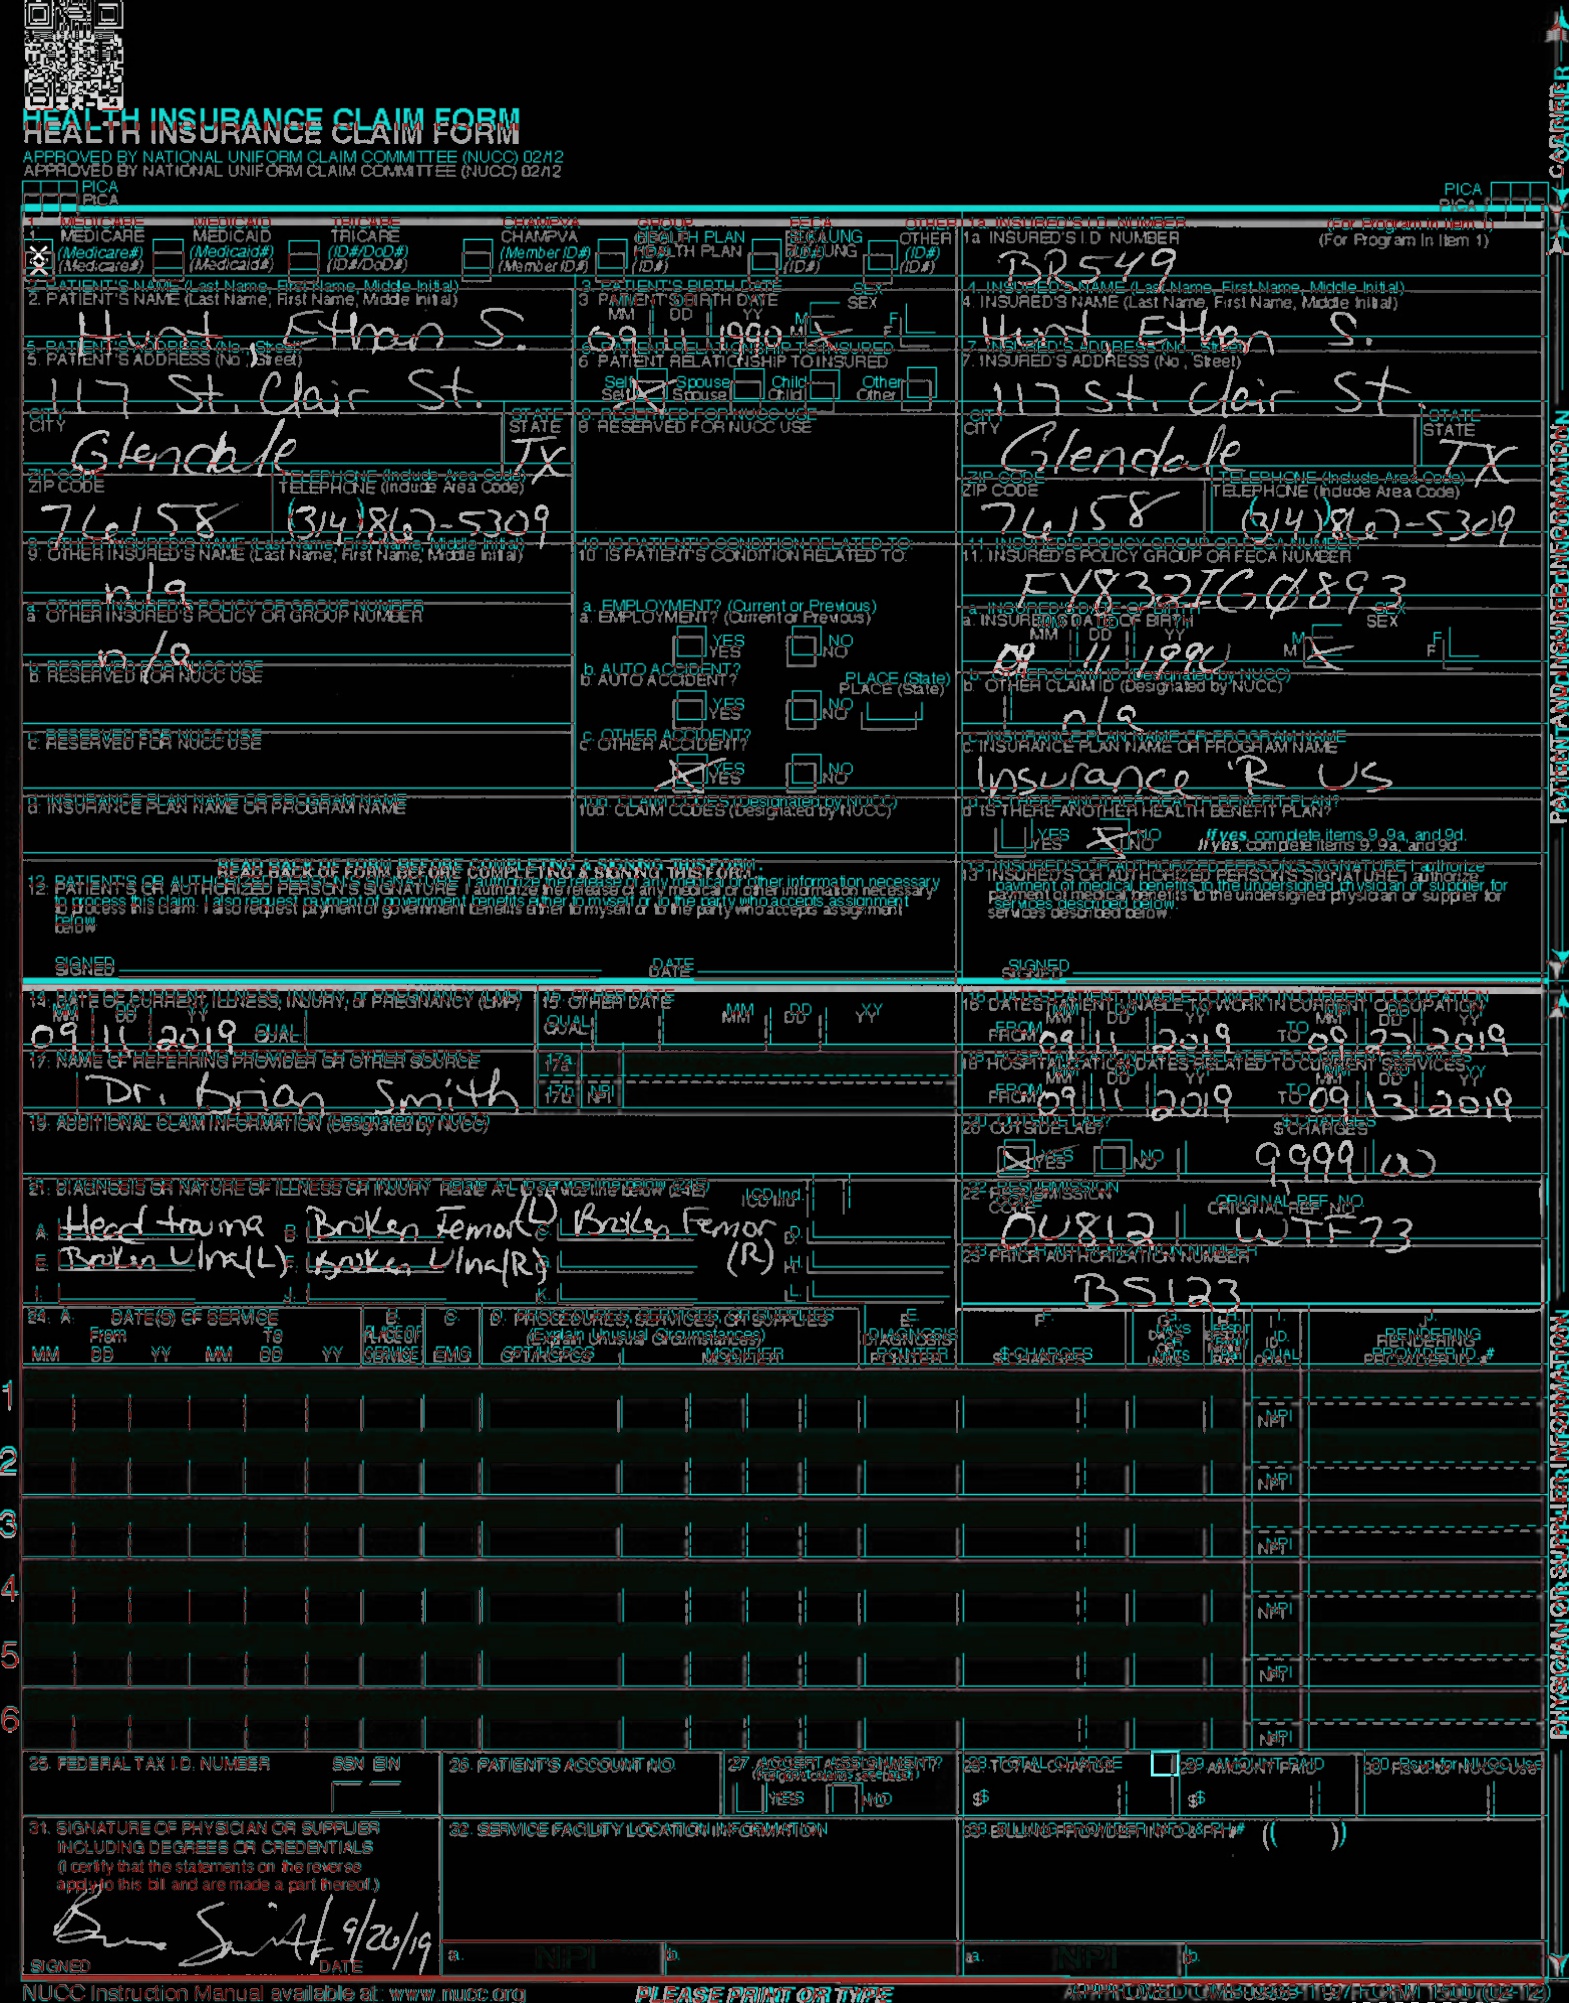 HEALTH INSURANCE CLAIM FORM
APPROVED BY NATIONAL UNIFORM CLAIM COMMITTEE (NUCC) 02/12
PICA
PICA
CARRIER
1. MEDICARE MEDICAID TRICARE CHAMPVA GROUP HEALTH PLAN FECA BLK LUNG OTHER
(Medicare#) (Medicaid#) (ID#/DoD#) (Member ID#) (ID#) (ID#) (ID#)
1a. INSURED'S I.D. NUMBER (For Program in Item 1)
BR549
2. PATIENT'S NAME (Last Name, First Name, Middle Initial)
Hunt, Ethan S.
3. PATIENT'S BIRTH DATE SEX
MM DD YY M F
09 11 1990 X
4. INSURED'S NAME (Last Name, First Name, Middle Initial)
Hunt Ethan S.
5. PATIENT'S ADDRESS (No., Street)
117 St. Clair St.
6. PATIENT RELATIONSHIP TO INSURED
Self X Spouse Child Other
7. INSURED'S ADDRESS (No., Street)
117 St. Clair St.
CITY STATE
Glendale TX
8. RESERVED FOR NUCC USE
CITY STATE
Glendale TX
ZIP CODE TELEPHONE (Include Area Code)
76158 (314)867-5309
ZIP CODE TELEPHONE (Include Area Code)
76158 (314)867-5309
9. OTHER INSURED'S NAME (Last Name, First Name, Middle Initial)
n/a
10. IS PATIENT'S CONDITION RELATED TO:
11. INSURED'S POLICY GROUP OR FECA NUMBER
a. OTHER INSURED'S POLICY OR GROUP NUMBER
n/a
a. EMPLOYMENT? (Current or Previous)
YES NO
a. INSURED'S DATE OF BIRTH SEX
MM DD YY M F
09 11 1990 X
b. RESERVED FOR NUCC USE
b. AUTO ACCIDENT? PLACE (State)
YES NO
b. OTHER CLAIM ID (Designated by NUCC)
n/a
c. RESERVED FOR NUCC USE
c. OTHER ACCIDENT?
X YES NO
c. INSURANCE PLAN NAME OR PROGRAM NAME
Insurance 'R US
d. INSURANCE PLAN NAME OR PROGRAM NAME
10d. CLAIM CODES (Designated by NUCC)
d. IS THERE ANOTHER HEALTH BENEFIT PLAN?
YES X NO If yes, complete items 9, 9a, and 9d.
READ BACK OF FORM BEFORE COMPLETING & SIGNING THIS FORM.
12. PATIENT'S OR AUTHORIZED PERSON'S SIGNATURE I authorize the release of any medical or other information necessary
to process this claim. I also request payment of government benefits either to myself or to the party who accepts assignment
below.
SIGNED DATE
13. INSURED'S OR AUTHORIZED PERSON'S SIGNATURE I authorize
payment of medical benefits to the undersigned physician or supplier for
services described below.
SIGNED
PATIENT AND INSURED INFORMATION
14. DATE OF CURRENT ILLNESS, INJURY, or PREGNANCY (LMP)
MM DD YY
09 11 2019 QUAL.
15. OTHER DATE
QUAL. MM DD YY
16. DATES PATIENT UNABLE TO WORK IN CURRENT OCCUPATION
MM DD YY MM DD YY
FROM 09 11 2019 TO 09 27 2019
17. NAME OF REFERRING PROVIDER OR OTHER SOURCE
Dr. Brian Smith
17a.
17b. NPI
18. HOSPITALIZATION DATES RELATED TO CURRENT SERVICES
MM DD YY MM DD YY
FROM 09 11 2019 TO 09 13 2019
19. ADDITIONAL CLAIM INFORMATION (Designated by NUCC)
20. OUTSIDE LAB? $ CHARGES
X YES NO 9999 00
21. DIAGNOSIS OR NATURE OF ILLNESS OR INJURY Relate A-L to service line below (24E) ICD Ind.
A. Head trauma B. Broken Femor(L) C. Broken Femor (R) D.
E. Broken Ulna(L) F. Broken Ulna(R) G. H.
I. J. K. L.
22. RESUBMISSION CODE ORIGINAL REF. NO.
OU812 WTF73
23. PRIOR AUTHORIZATION NUMBER
BS123
24. A. DATE(S) OF SERVICE B. C. D. PROCEDURES, SERVICES, OR SUPPLIES E. F. G. H. I. J.
From To PLACE OF (Explain Unusual Circumstances) DIAGNOSIS DAYS OR UNITS ID. RENDERING
MM DD YY MM DD YY SERVICE EMG CPT/HCPCS MODIFIER POINTER $ CHARGES QUAL. PROVIDER ID. #
1 NPI
2 NPI
3 NPI
4 NPI
5 NPI
6 NPI
PHYSICIAN OR SUPPLIER INFORMATION
25. FEDERAL TAX I.D. NUMBER SSN EIN
26. PATIENT'S ACCOUNT NO.
27. ACCEPT ASSIGNMENT?
YES NO
28. TOTAL CHARGE
$
29. AMOUNT PAID
$
30. Rsvd for NUCC Use
31. SIGNATURE OF PHYSICIAN OR SUPPLIER
INCLUDING DEGREES OR CREDENTIALS
(I certify that the statements on the reverse
apply to this bill and are made a part thereof.)
9/26/19
SIGNED DATE
32. SERVICE FACILITY LOCATION INFORMATION
a. NPI b.
33. BILLING PROVIDER INFO & PH# ( )
a. NPI b.
NUCC Instruction Manual available at: www.nucc.org
PLEASE PRINT OR TYPE